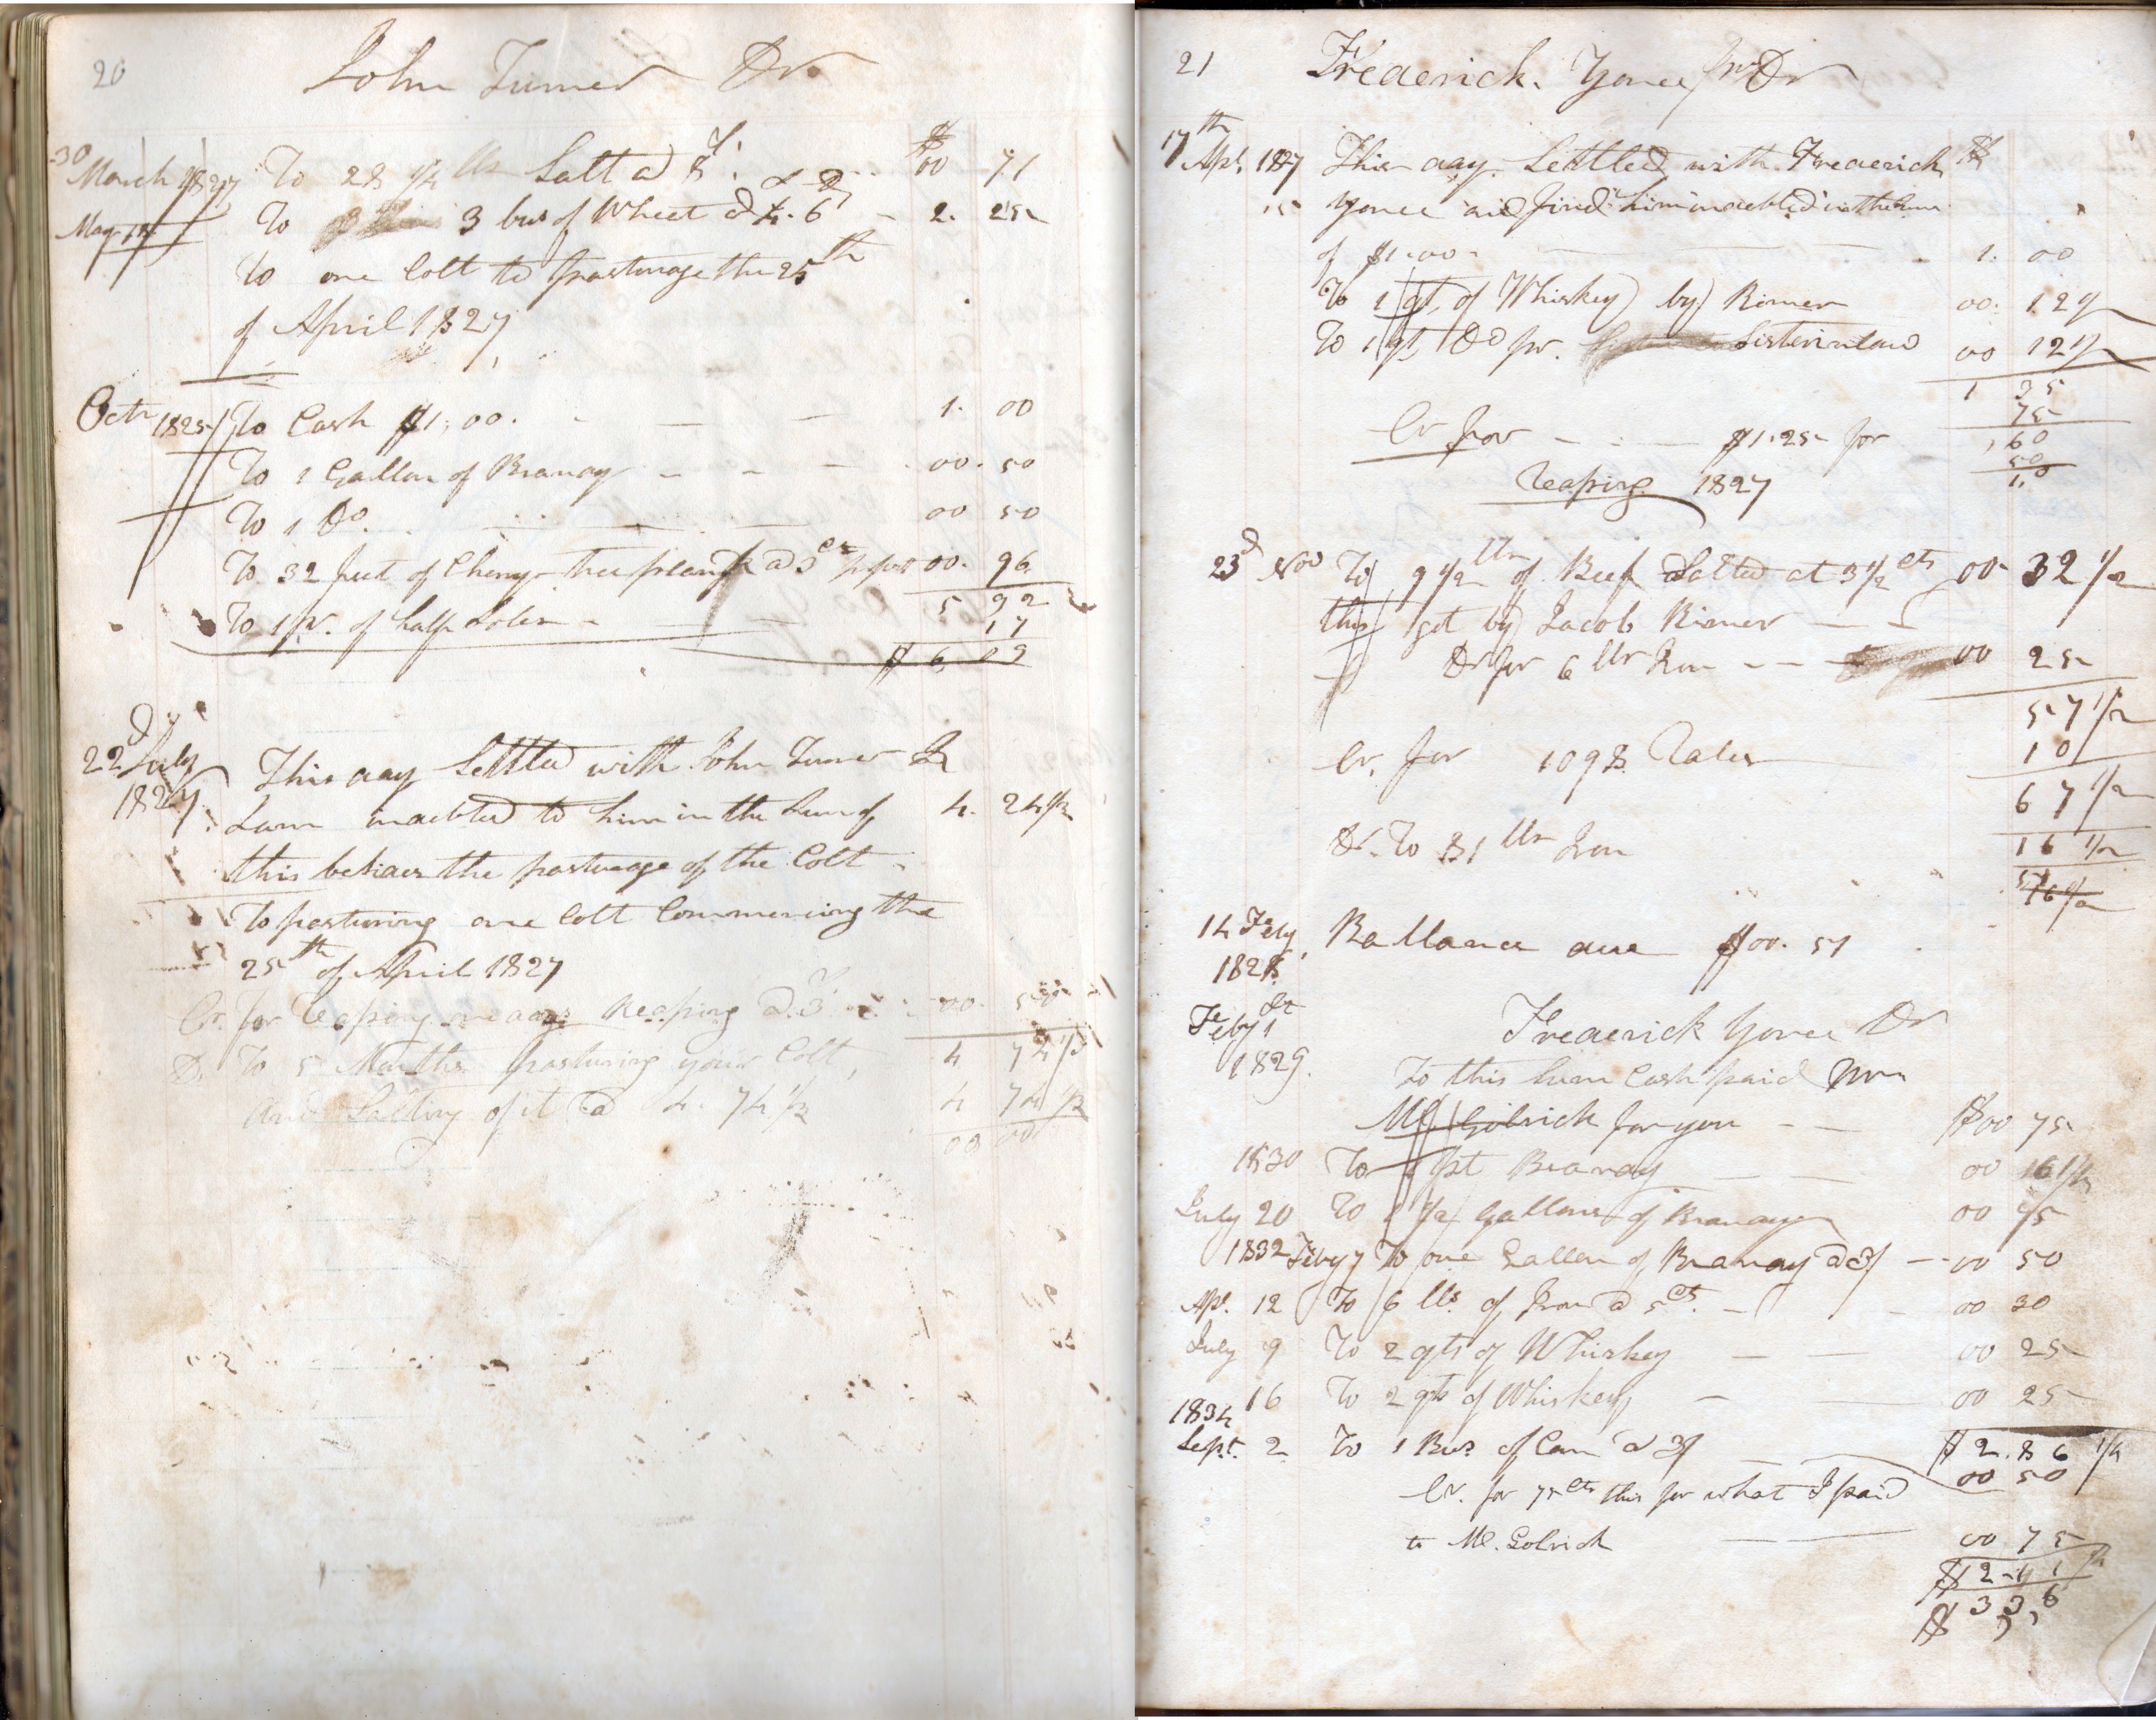 20
John Turner Dr
30
March 1827 To 28 1/2 lbs Salt a 8/. $ 00 71
May To 3 bus of Wheat @ 4.6 - 2. 25
To one Colt to pasturage the 25th
of April 1827
Octr 1825 To Cash $1.00. - - - 1. 00
To 1 Gallon of Brandy - - - 00. 50
To 1 Do. 00 50
To 32 feet of Cherry tree plank a 3 cts pr foot 00. 96
5 92
To 1 pr. of half Soles - 17
$ 6 09
22d July
1827. This day Settled with John Turner &
I am indebted to him in the Sum of 4. 24 1/2
this besides the pasturage of the Colt
To pasturing one Colt Commencing the
25th of April 1827
Cr. for Reaping Reaping @ 3 00. 50
Dr. To 5 Months pasturing your Colt, 4 74 1/2
And Salting of it @ 4. 74 1/2 4 74 1/2
00 00
21
Frederick. Yonce Jnr Dr
17th
Apl. 1827 This day Settled with Frederick $
Yonce and find him indebted in the Sum
of $1.00- 1. 00
To 1 qt, of Whiskey by Rimer 00. 12 1/2
To 1 qt, Do pr. Sisterinlaw 00 12 1/2
1 35
75
Cr for - - $1.25 for ,60
50
Reaping 1827 1,0
23d Nov To 9 1/2 lbs of Beef Salted at 3 1/2 cts 00 32 1/2
this got by Jacob Rimer - -
Dr for 6 lbs Iron - - 00 25
57 1/2
Cr. for 109 Rales 10
67 1/2
Dr. To 31 lbs Iron 16 1/2
51
76 1/2
14 Feby
1828 Ballance due $00. 51
Feby 1st
1829. Frederick Yonce Dr
To this Sum Cash paid Wm
Mc Golrick for you - - $00 75
1830 To 1 pt Brandy - - 00 16 1/4
July 20 To 1 1/2 Gallons of Brandy 00 75
1832 Feby 7 To one Gallon of Brandy @ 3/ - 00 50
Apl. 12 To 6 lbs. of Iron @ 5 cts. - 00 30
July 9 To 2 qts of Whiskey - - 00 25
16 To 2 qts of Whiskey - 00 25
$ 2.86 1/4
1834
Sept. 2 To 1 Bus of Corn @ 3/ 00 50
Cr. for 75 cts this for what I paid
to Mc. Golrick 00 75
$ 2-11 1/4
$ 3 36